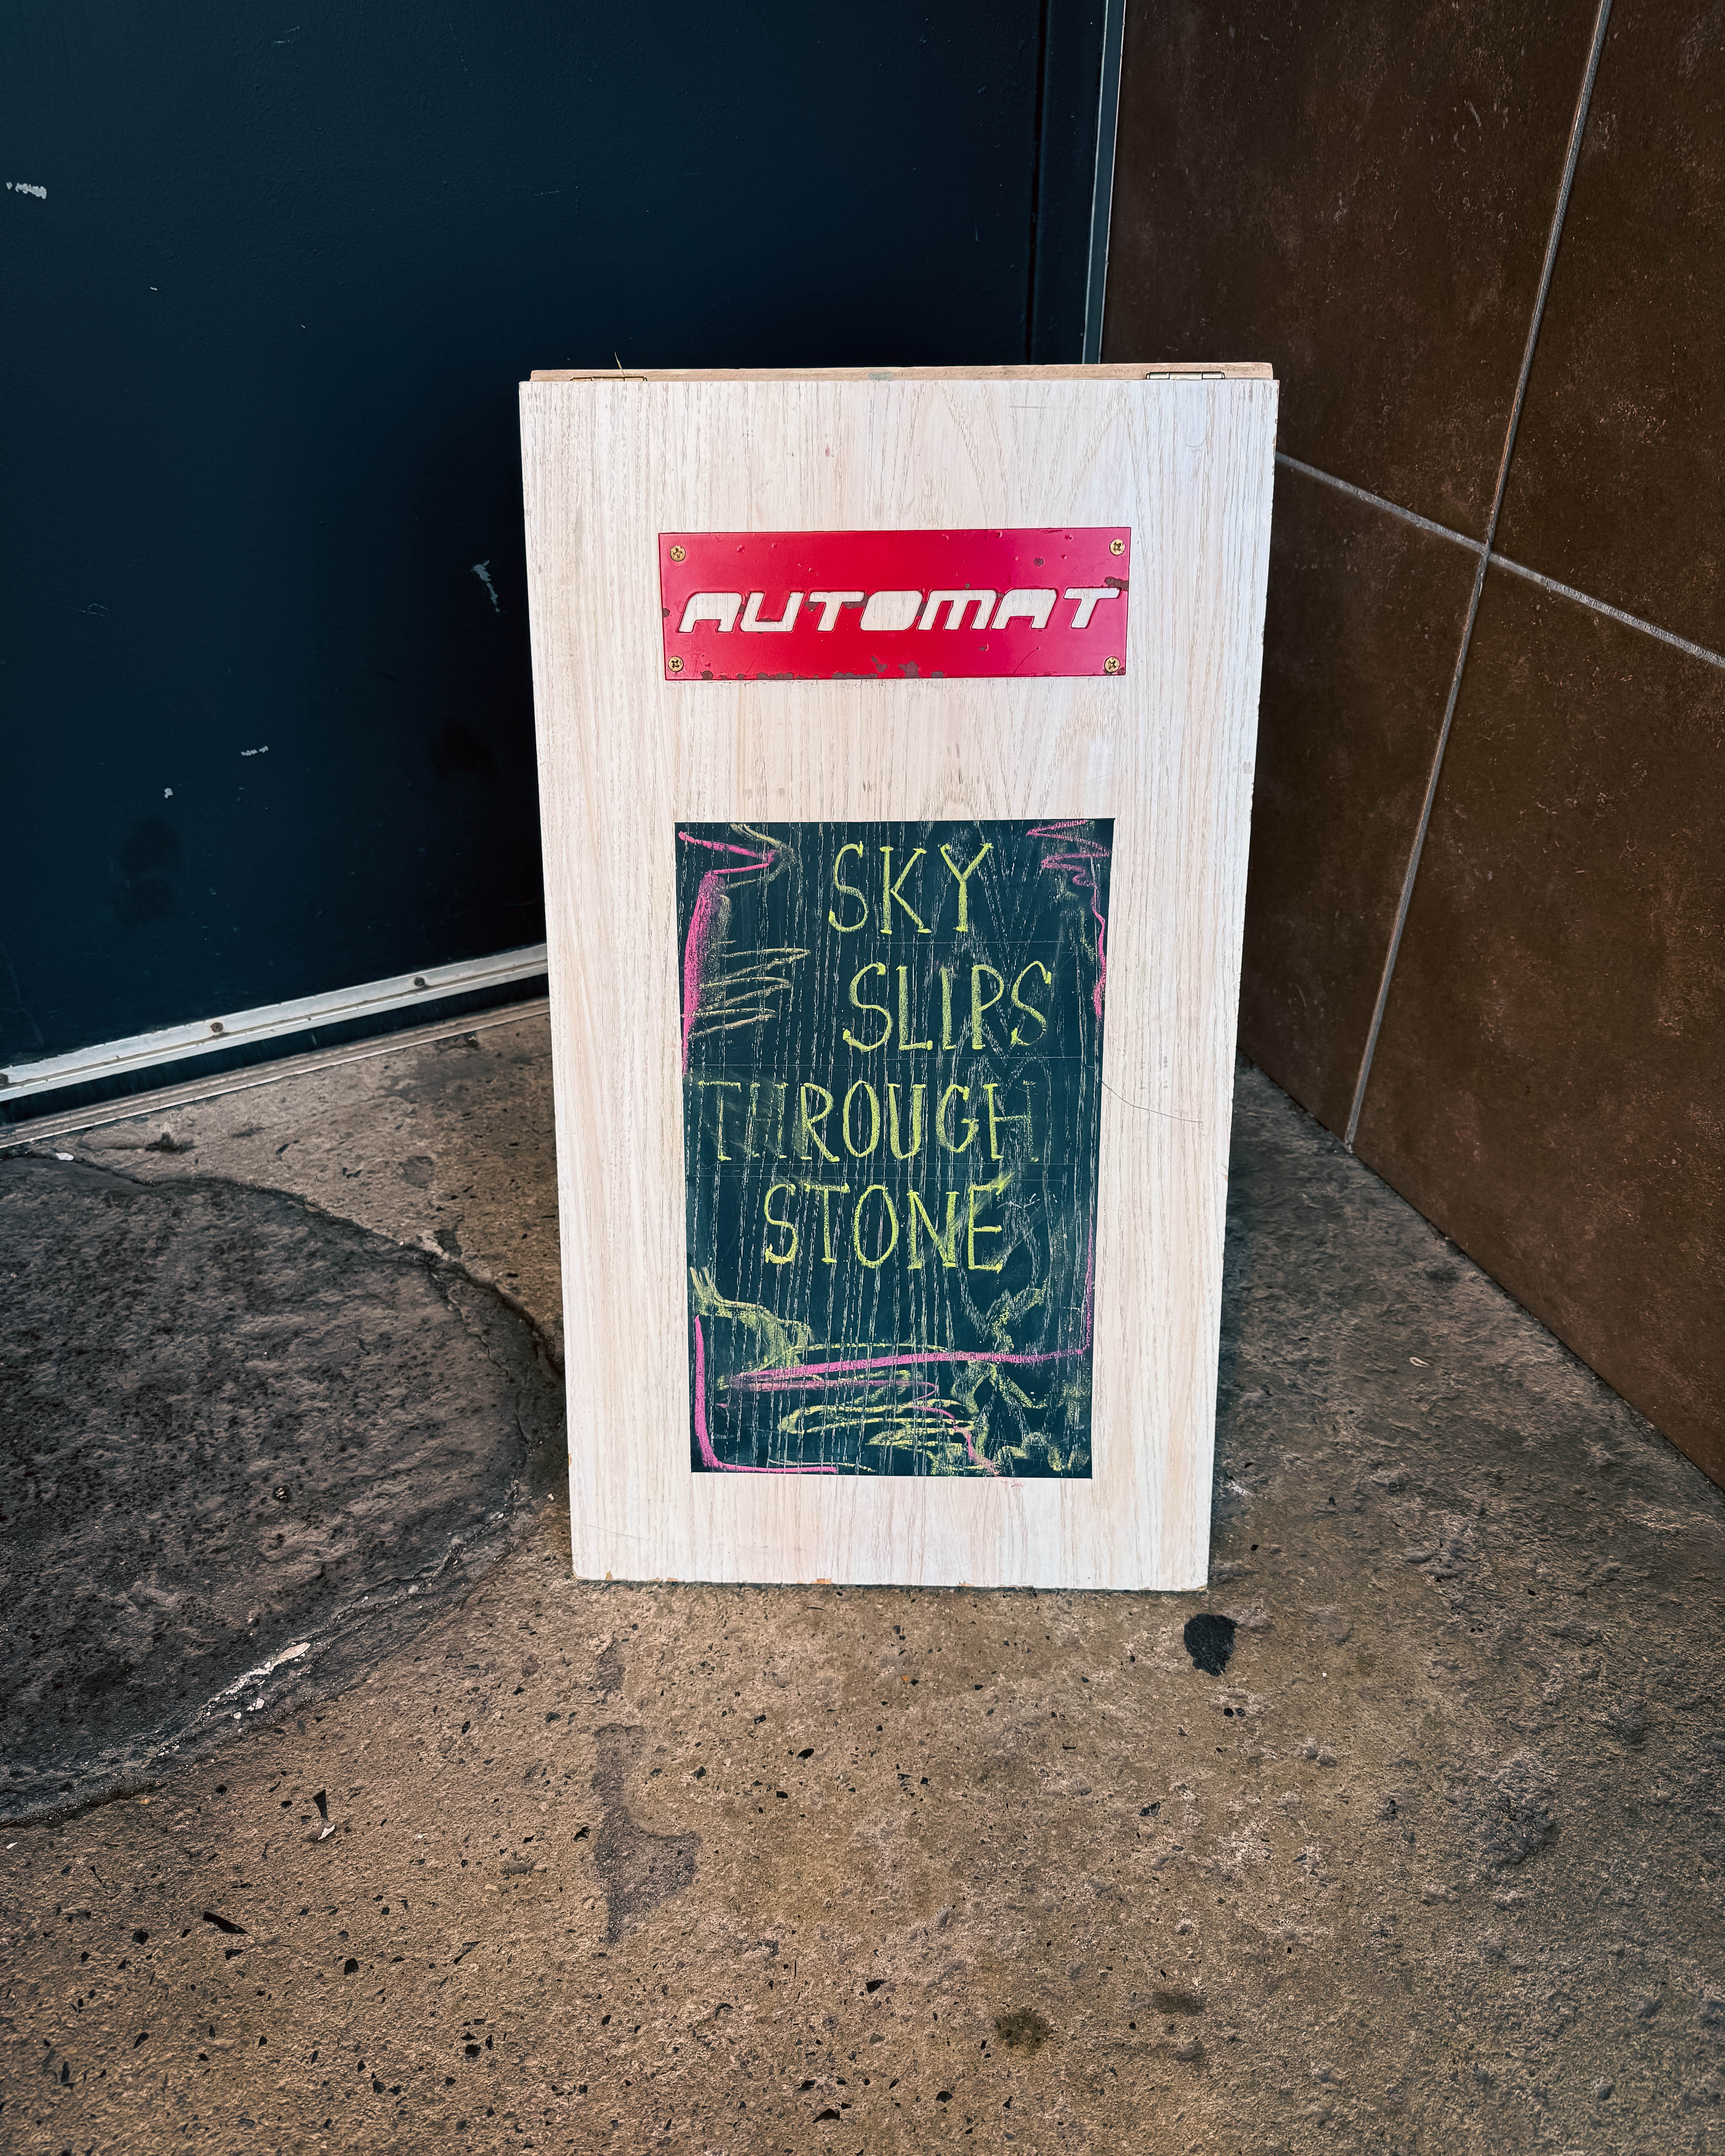 AUTOMAT
SKY
SLIPS
THROUGH
STONE